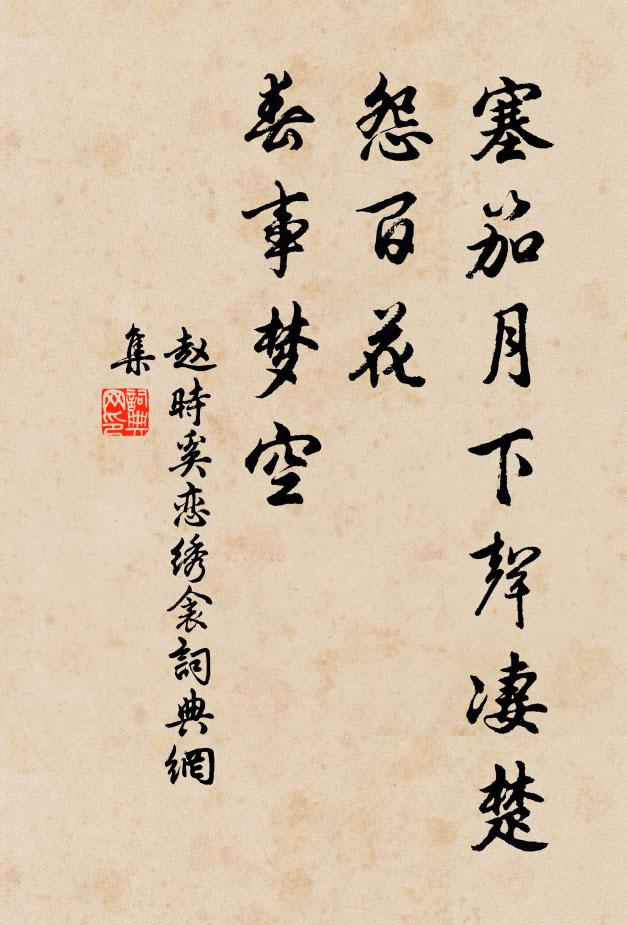 塞笳月下聲凄楚
怨百花
春事梦空
赵時奚恋绣衾詞典網
集
詞典
网印